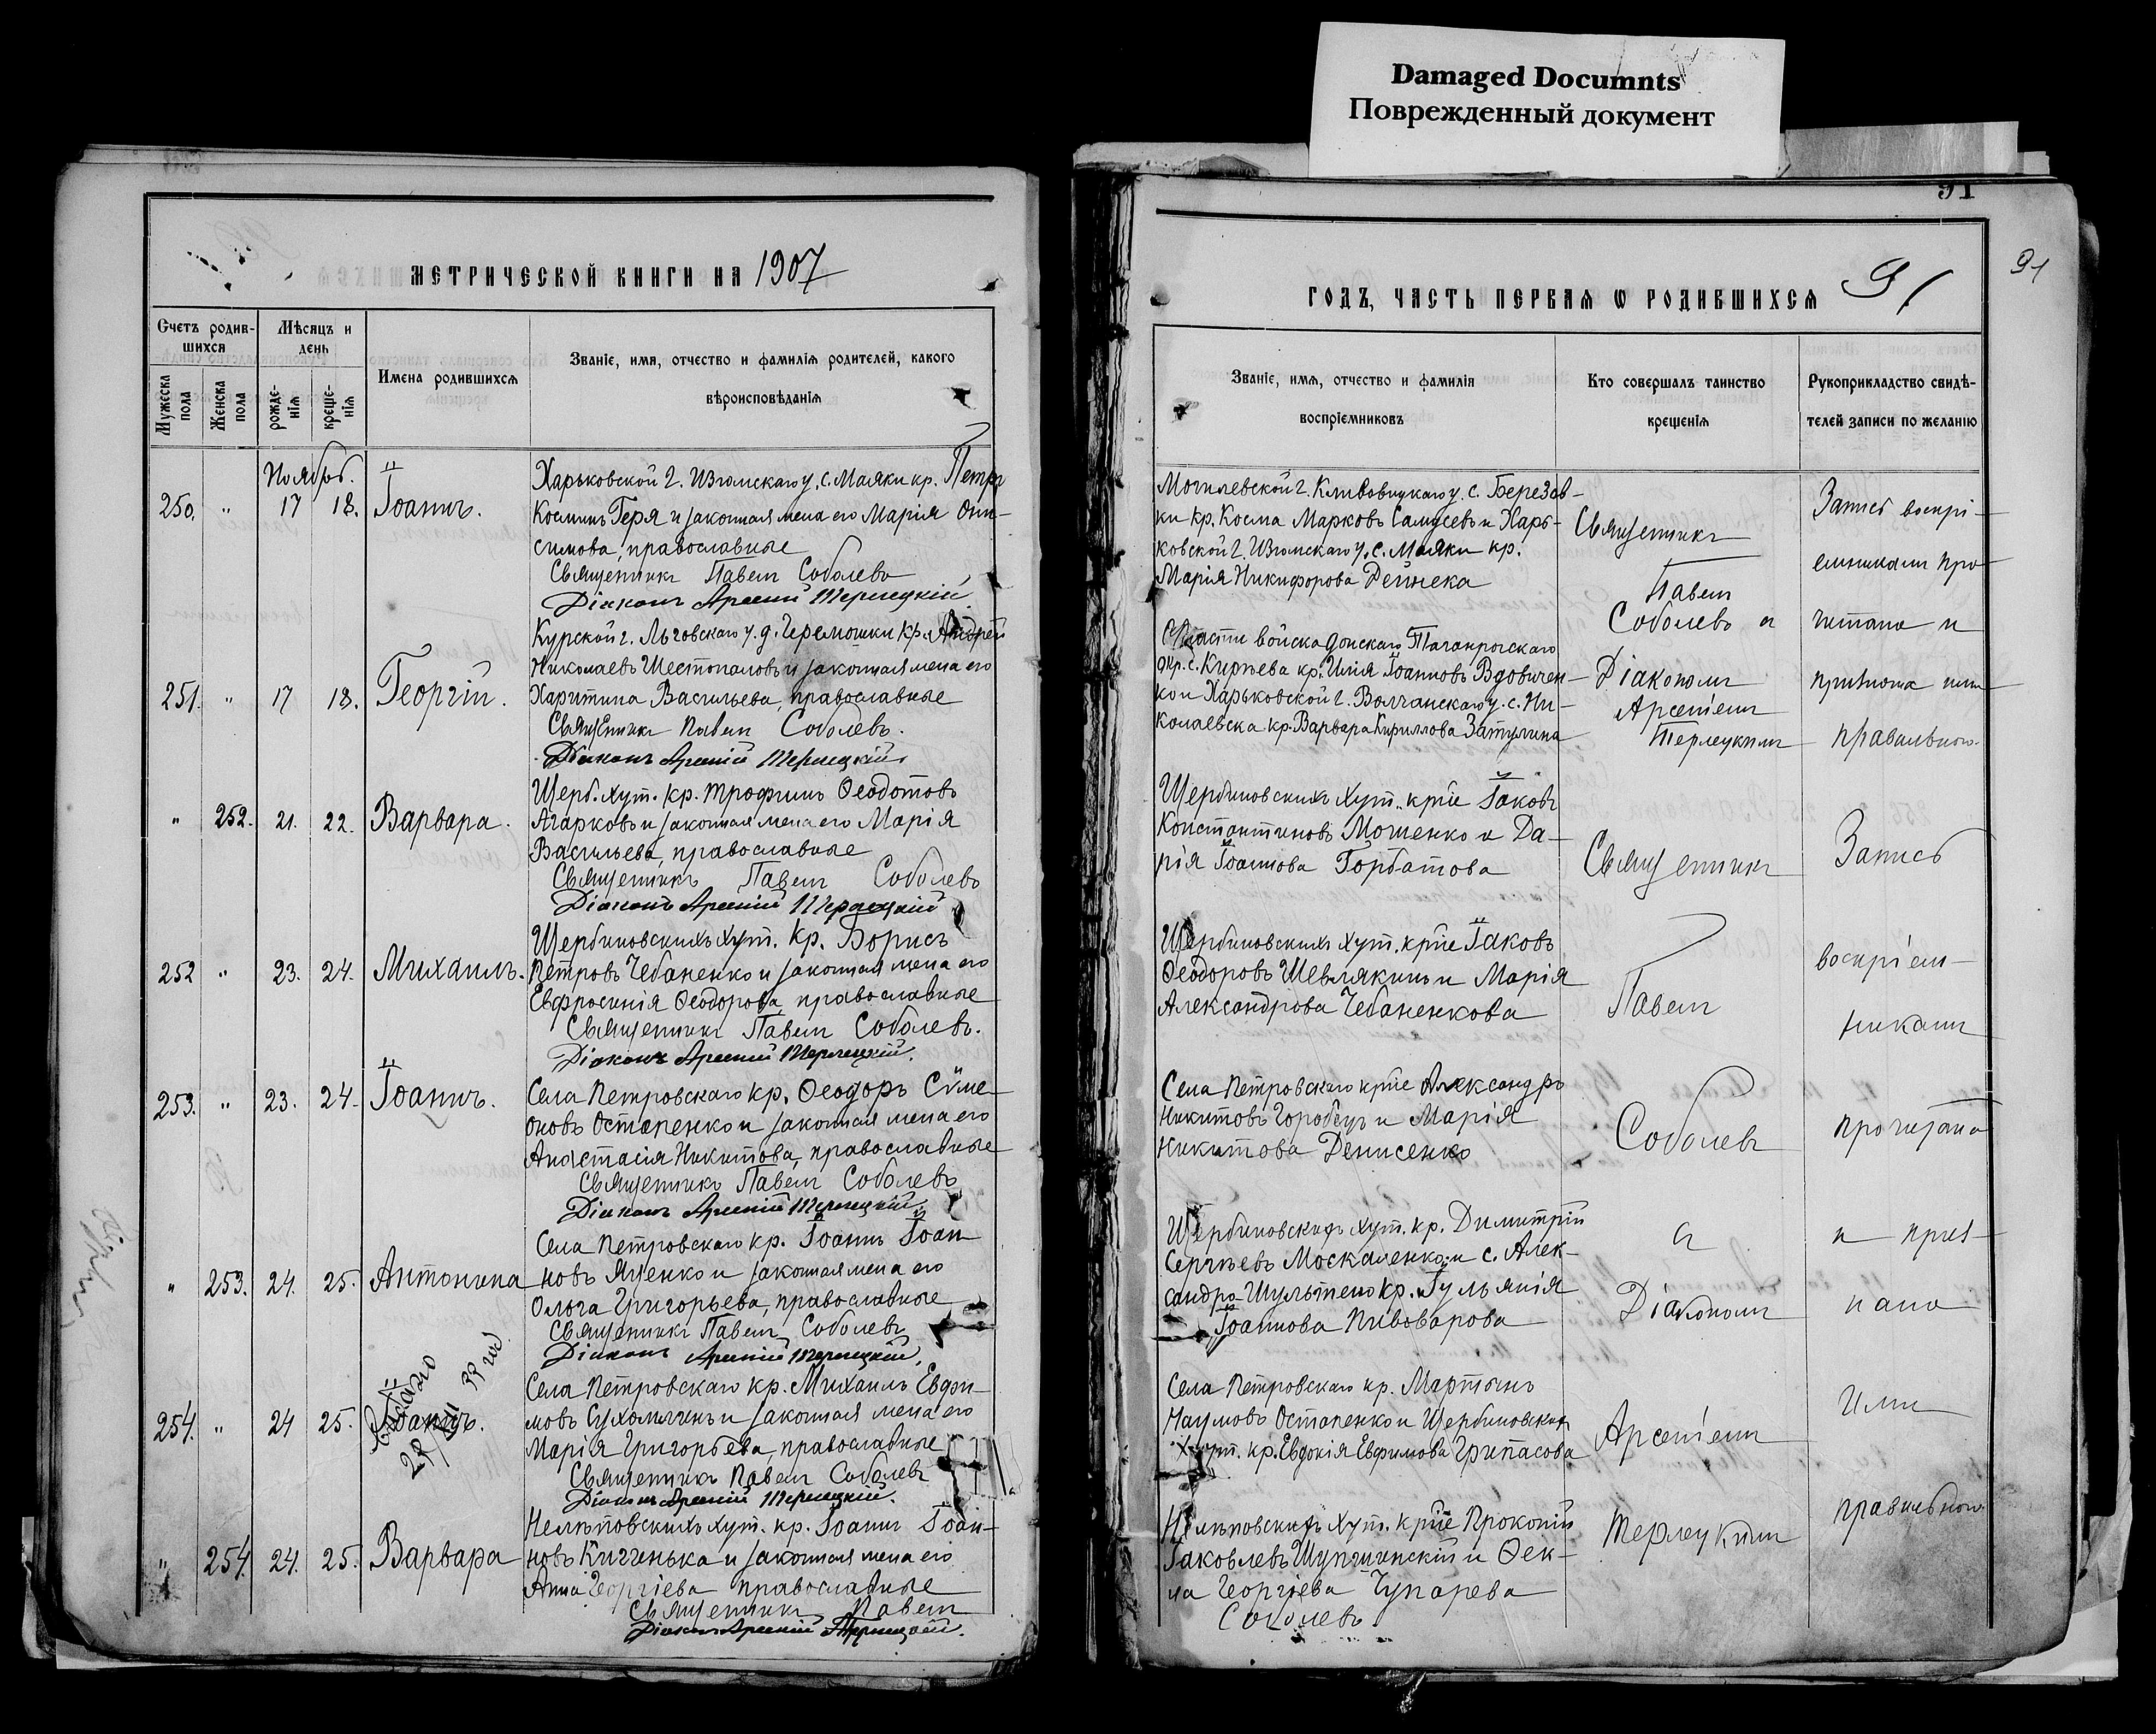 Damaged Documnts
Поврежденный документ
91
91
МЕТРИЧЕСКОЙ КНИГИ НА 1907
ГОДЪ, ЧАСТЬ ПЕРВАЯ Ѡ РОДИВШИХСЯ 91
Счетъ родив-
шихся
Мѣсяцъ и
день
Мужеска
пола
Женска
пола
рожде-
нія
креще-
нія
Имена родившихся
Званіе, имя, отчество и фамилія родителей, какого
вѣроисповѣданія
Ноябрь.
250. " 17 18. Іоаннъ.
Харьковской г. Изюмскаго у. с. Маяки кр. Петръ
Косминъ Геря и законная жена его Марія Они-
симова, православные
Священникъ Павелъ Соболевъ
Діаконъ Арсеній Терлецкій.
251. " 17 18. Георгій.
Курской г. Льговскаго у. д. Черемошки кр. Андрей
Николаевъ Шестопаловъ и законная жена его
Харитина Васильева, православные
Священникъ Павелъ Соболевъ.
Діаконъ Арсеній Терлецкій.
" 252. 21. 22. Варвара.
Щерб. хут. кр. Трофимъ Ѳеодотовъ
Агарковъ и законная жена его Марія
Васильева, православные
Священникъ Павелъ Соболевъ
Діаконъ Арсеній Терлецкій
252 " 23. 24. Михаилъ.
Щербиновскихъ хут. кр. Борисъ
Петровъ Чебаненко и законная жена его
Евфросинія Ѳеодорова, православные
Священникъ Павелъ Соболевъ.
Діаконъ Арсеній Терлецкій.
253. " 23. 24. Іоаннъ.
Села Петровскаго кр. Ѳеодоръ Сѵме-
оновъ Остапенко и законная жена его
Анастасія Никитова, православные
Священникъ Павелъ Соболевъ
Діаконъ Арсеній Терлецкій
" 253. 24. 25. Антонина
Села Петровскаго кр. Іоаннъ Іоан
новъ Яценко и законная жена его
Ольга Григорьева, православные
Священникъ Павелъ Соболевъ
Діаконъ Арсеній Терлецкій.
254. " 24 25. Іоаннъ.
Села Петровскаго кр. Михаилъ Евфи-
мовъ Сухомлинъ и законная жена его
Марія Григорьева, православные
Священникъ Павелъ Соболевъ
Діаконъ Арсеній Терлецкій.
" 254 24. 25. Варвара
Нелѣповскихъ хут. кр. Іоаннъ Іоан-
новъ Киченька и законная жена его
Анна Георгіева православные
Священникъ Павелъ
Діаконъ Арсеній Терлецкій.
Званіе, имя, отчество и фамилія
воспріемниковъ
Могилевской г. Климовицкаго у. с. Березов-
ки кр. Косма Марковъ Самусевъ и Харь-
ковской г. Изюмскаго у. с. Маяки кр.
Марія Никифорова Дейнека
Области войска донскаго Таганрогскаго
окр. с. Кирѣева кр. Илія Іоанновъ Вдовичен-
ко и Харьковской г. Волчанскаго у. с. Ни-
колаевска кр. Варвара Кириллова Затулина
Щербиновскихъ хут. кр̃не Іаковъ
Константиновъ Мошенко и Да-
рія Іоаннова Горбатова
Щербиновскихъ хут. кр̃не Іаковъ
Ѳеодоровъ Шевлякинъ и Марія
Александрова Чебаненкова
Села Петровскаго кр̃не Александръ
Никитовъ Горобецъ и Марія
Никитова Денисенко
Щербиновскихъ хут. кр. Димитрій
Сергѣевъ Москаленко и с. Алек-
сандро Шультено кр. Іуліянія
Іоаннова Пивоварова
Села Петровскаго кр. Мартынъ
Наумовъ Остапенко и Щербиновскихъ
хут. кр. Евдокія Евфимова Грипасова
Нелѣповскихъ хут. кр̃не Прокопій
Іаковлевъ Шупчинскій и Ѳек-
ла Георгіева Чупарева
Соболевъ
Кто совершалъ таинство
крещенія
Священникъ
Павелъ
Соболевъ и
Діакономъ
Арсеніемъ
Терлецкимъ
Священникъ
Павелъ
Соболевъ
и
Діакономъ
Арсеніемъ
Терлецкимъ
Рукоприкладство свидѣ-
телей записи по желанію
Запись воспрі-
емниками про-
читана и
признана ими
правильною.
Запись
воспріем-
никами
прочитана
и приз-
нана
Ими
правильною